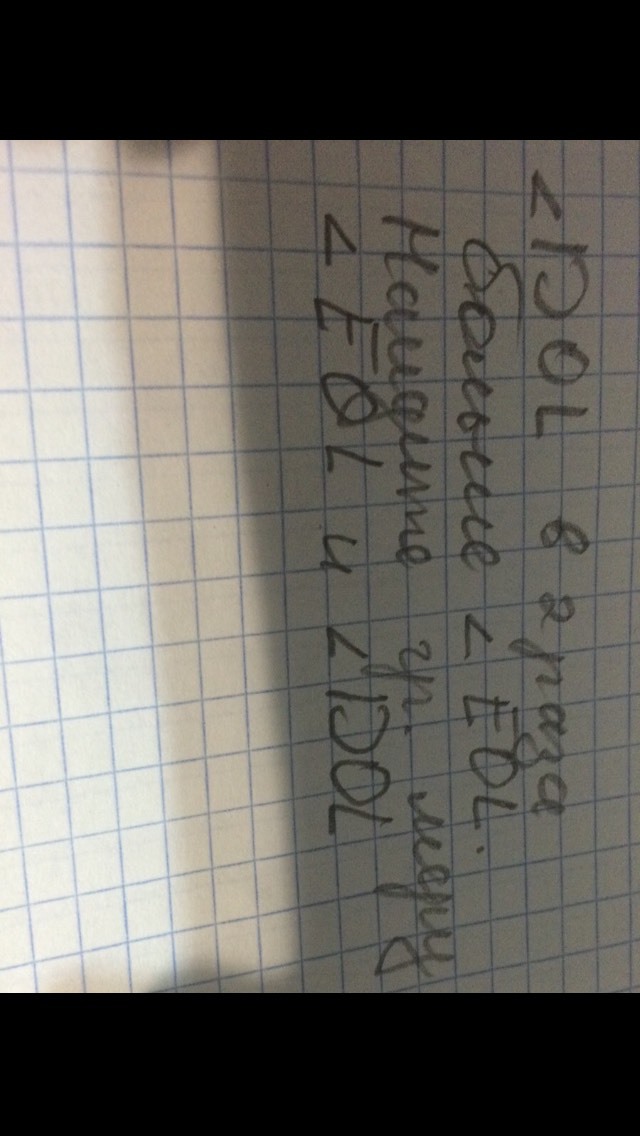 ∠DOL в 2 раза
больше ∠EOL.
Найдите гр. меру
∠EOL и ∠DOL